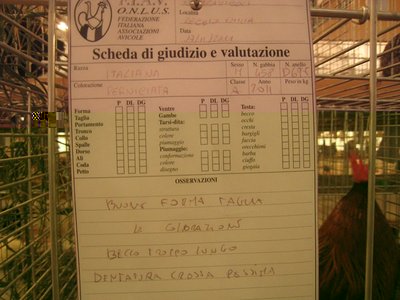 F.I.A.V.
O.N.L.U.S.
FEDERAZIONE
ITALIANA
ASSOCIAZIONI
AVICOLE
Località
Scheda di giudizio e valutazione
Razza ITALIANA
Sesso N. gabbia N. anello
Colorazione
Classe Anno Peso in kg
A 2011
P DL DG P DL DG P DL DG
Forma Ventre Testa:
Taglia Gambe becco
Portamento Tarsi-dita: occhi
Tronco struttura cresta
Collo colore bargigli
Spalle piumaggio faccia
Dorso Piumaggio: orecchioni
Ali conformazione barba
Coda colore ciuffo
Petto disegno giogaia
OSSERVAZIONI
BUONE FORMA TAGLIA
E COLORAZIONE
BECCO TROPPO LUNGO
DENTATURA CRESTA PESSIMA